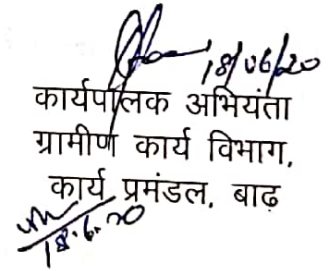 18/06/20
कार्यपालक अभियंता
ग्रामीण कार्य विभाग,
कार्य प्रमंडल, बाढ़
18.6.20